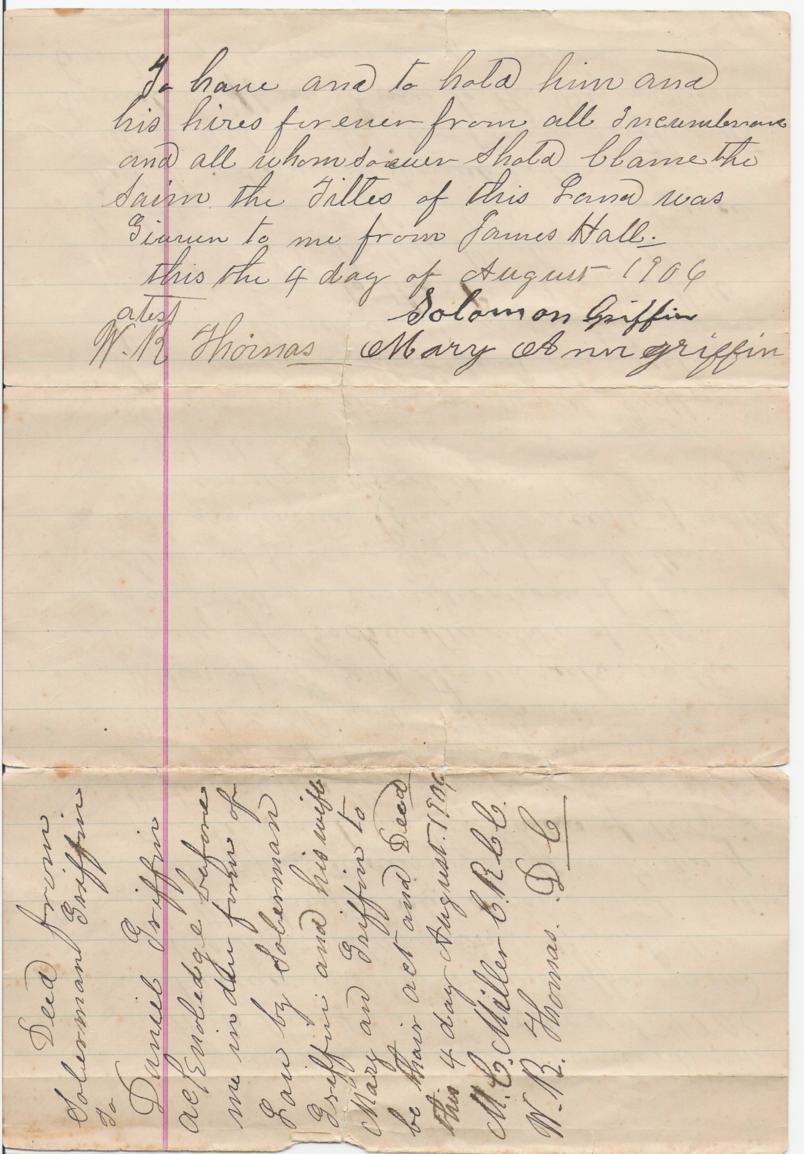 To have and to hold him and
his hires forever from all Incumbrance
and all whomsoever Shold Clame the
Saim the Titles of this Land was
Givven to me from James Hall.
this the 4 day of August 1906
atest
Solomon Griffin
W. R Thomas Mary Ann griffin
Deed from
Soberman Griffin
to
Daniel Griffin
acknoledge before
me in due form of
Law by Soberman
Griffin and his wife
Mary an Griffin to
be thair act and Deed
this 4 day August 1906
M. C. Miller C. R. C. C.
W. R. Thomas. D C